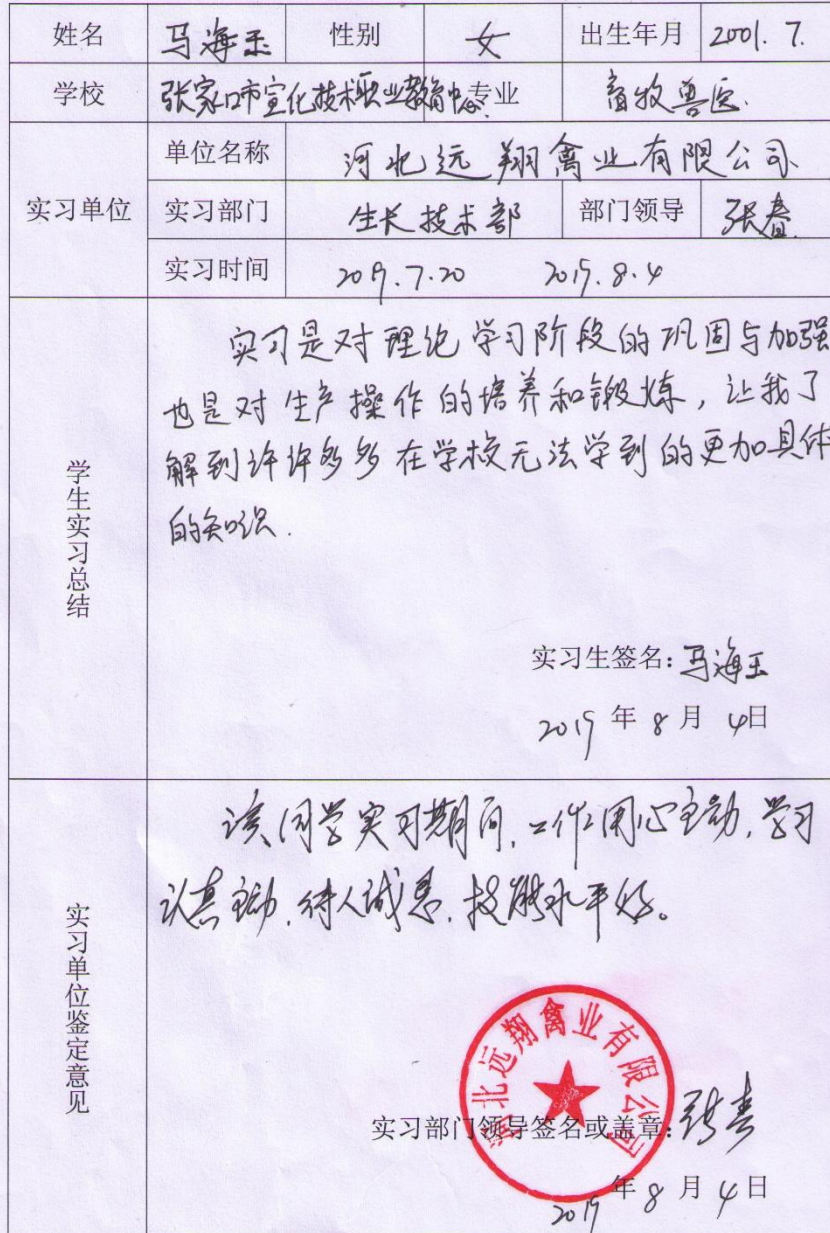 姓名 马海玉 性别 女 出生年月 2001.7.
学校 张家口市宣化技术职业教育中心 专业 畜牧兽医.
实习单位
单位名称 河北远翔禽业有限公司.
实习部门 生长技术部 部门领导 张春.
实习时间 2019.7.20 2019.8.4
学生实习总结
实习是对理论学习阶段的巩固与加强
也是对生产操作的培养和锻炼，让我了
解到许许多多在学校无法学到的更加具体
的知识.
实习生签名：马海玉
2019 年 8 月 4日
实习单位鉴定意见
该同学实习期间，工作用心主动，学习
认真主动，待人诚恳，技能水平好。
河北远翔禽业有限公司
实习部门领导签名或盖章：张春
2019 年 8 月 4日